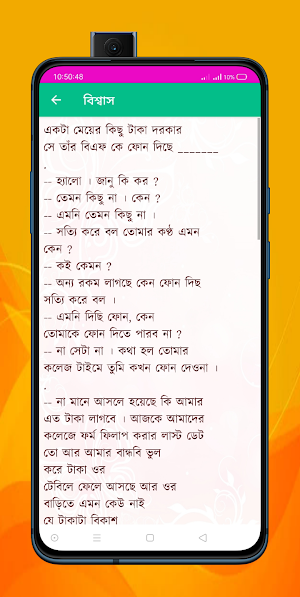 10:50:48
10%
বিশ্বাস
একটা মেয়ের কিছু টাকা দরকার
সে তাঁর বিএফ কে ফোন দিছে _______
.
-- হ্যালো । জানু কি কর ?
-- তেমন কিছু না । কেন ?
-- এমনি তেমন কিছু না ।
-- সত্যি করে বল তোমার কণ্ঠ এমন
কেন ?
-- কই কেমন ?
-- অন্য রকম লাগছে কেন ফোন দিছ
সত্যি করে বল ।
-- এমনি দিছি ফোন, কেন
তোমাকে ফোন দিতে পারব না ?
-- না সেটা না । কথা হল তোমার
কলেজ টাইমে তুমি কখন ফোন দেওনা ।
.
-- না মানে আসলে হয়েছে কি আমার
এত টাকা লাগবে । আজকে আমাদের
কলেজে ফর্ম ফিলাপ করার লাস্ট ডেট
তো আর আমার বান্ধবি ভুল
করে টাকা ওর
টেবিলে ফেলে আসছে আর ওর
বাড়িতে এমন কেউ নাই
যে টাকাটা বিকাশ